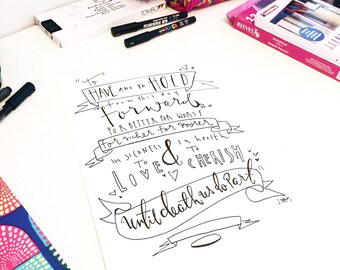 "To
HAVE AND TO HOLD
from this day
Forward
FOR BETTER FOR WORSE
for richer for poorer
IN SICKNESS & in health
TO LOVE & TO CHERISH
until death us do part"
REEVES